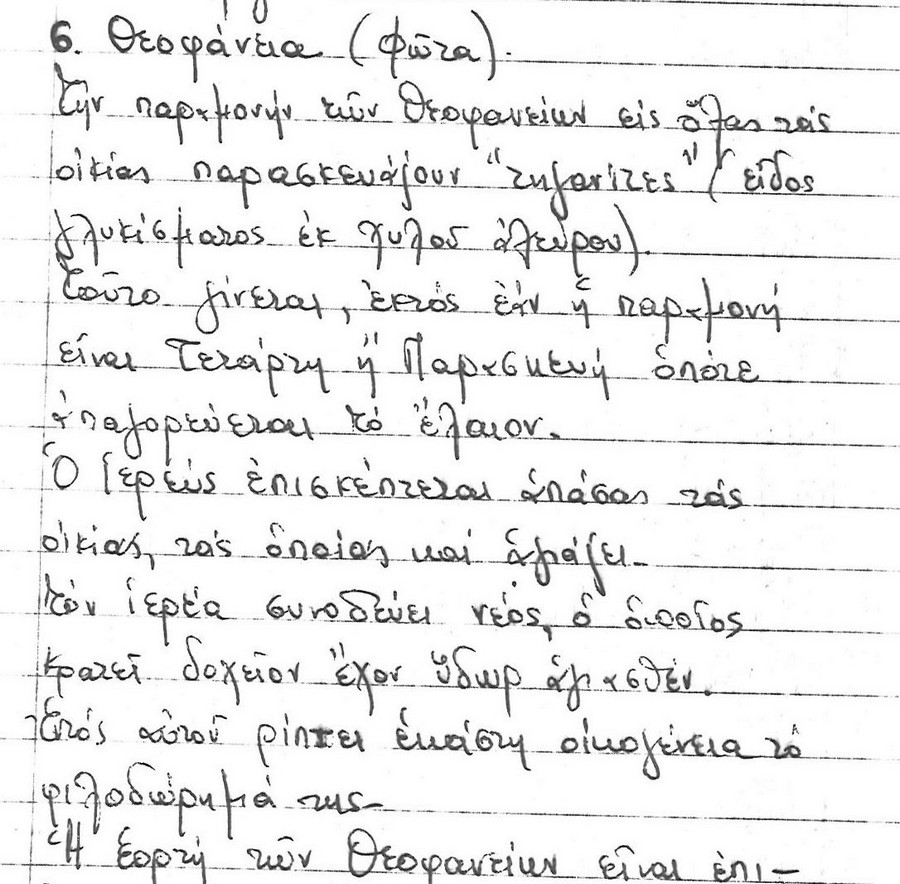 6. Θεοφάνεια (φῶτα).
Τήν παραμονήν τῶν Θεοφανείων εἰς ὅλας τάς
οἰκίας παρασκευάζουν "τηγανίτες" (εἶδος
γλυκίσματος ἐκ χυλοῦ ἀλεύρου).
Τοῦτο γίνεται, ἐκτός ἐάν ἡ παραμονή
εἶναι Τετάρτη ἤ Παρασκευή ὁπότε
ἀπαγορεύεται τό ἔλαιον.
Ὁ Ἱερεύς ἐπισκέπτεται ἁπάσας τάς
οἰκίας, τάς ὁποίας καί ἁγιάζει.
Τόν ἱερέα συνοδεύει νέος, ὁ ὁποῖος
κρατεῖ δοχεῖον ἔχον ὕδωρ ἁγιασθέν.
Ἐντός αὐτοῦ ρίπτει ἑκάστη οἰκογένεια τό
φιλοδώρημά της.
Ἡ ἑορτή τῶν Θεοφανείων εἶναι ἐπι-